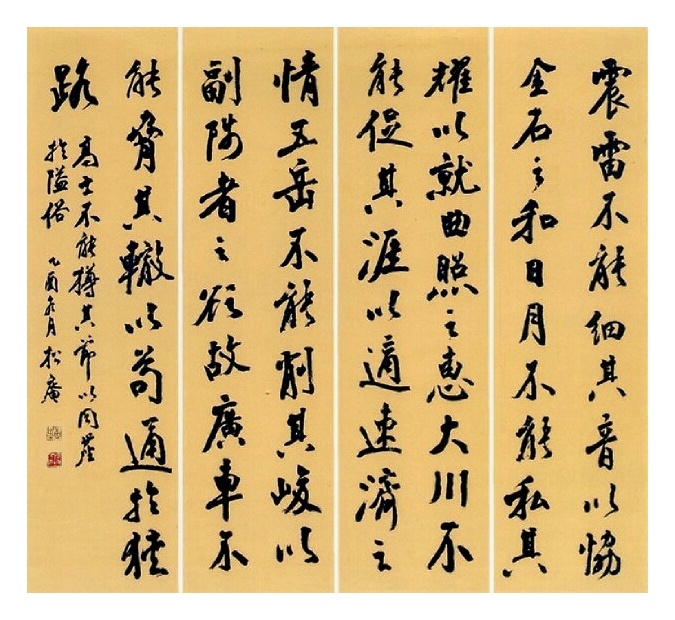 震雷不能細其音以恊
金石之和日月不能私其
耀以就曲照之惠大川不
能促其涯以適速濟之
情五岳不能削其峻以
副陟者之欲故廣車不
能脅其轍以苟通於狹
路
高士不能撙其節以同塵
於隘俗 乙酉冬月 松庵